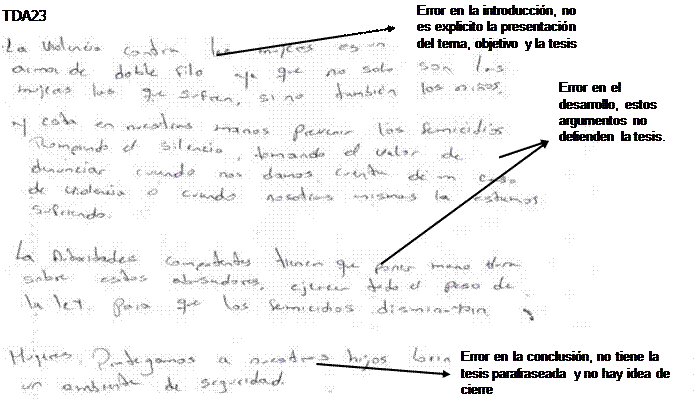 TDA23
Error en la introducción, no
es explicito la presentación
del tema, objetivo y la tesis
La Violencia contra las mujeres es un
arma de doble filo ya que no solo son las
mujeres las que sufren, si no también los niños.
Error en el
desarrollo, estos
argumentos no
defienden la tesis.
y esta en nuestras manos prevenir los femicidios
Rompiendo el silencio, tomando el valor de
denunciar cuando nos damos cuenta de un caso
de violencia o cuando nosotras mismas la estamos
sufriendo.
La Autoridades competentes tienen que poner mano dura
sobre estos abusadores, ejercer todo el peso de
la ley. para que los femicidios disminuyan
Mujeres Protegamos a nuestros hijos
un ambiente de seguridad.
Error en la conclusión, no tiene la
tesis parafraseada y no hay idea de
cierre